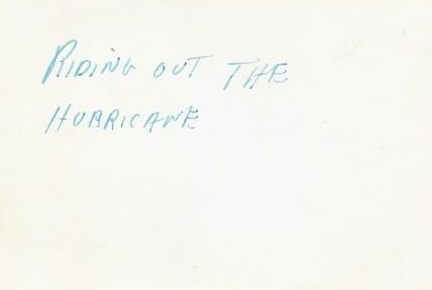 RIDING OUT THE
HURRICANE